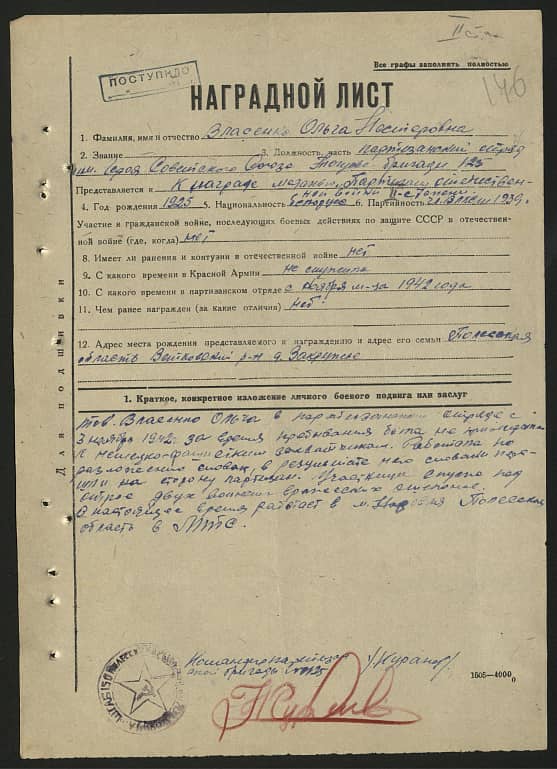 II ст
Все графы заполнять полностью
ПОСТУПИЛО
146
НАГРАДНОЙ ЛИСТ
1. Фамилия, имя и отчество Власенко Ольга Нестеровна
2. Звание 3. Должность, часть партизанский отряд
им. Героя Советского Союза бригады 125
Представляется к К награде медалью „Партизан отечествен-
ной войны" II степени.
4. Год рождения 1925 5. Национальность белоруска 6. Партийность чл. ВЛКСМ 1939г.
Участие в гражданской войне, последующих боевых действиях по защите СССР в отечествен-
ной войне (где, когда) нет
8. Имеет ли ранения и контузии в отечественной войне нет
9. С какого времени в Красной Армии не служила
10. С какого времени в партизанском отряде с ноября м-ца 1942 года
11. Чем ранее награжден (за какие отличия) нет
12. Адрес места рождения представляемого к награждению и адрес его семьи Полесская
область р-н д.
Для подшивки
1. Краткое, конкретное изложение личного боевого подвига или заслуг
тов. Власенко Ольга в партизанском отряде с
3 ноября 1942г. за время пребывания была
к немецко-фашистким захватчикам. Работала по
разложению словак, в результате чего словаки пере-
шли на сторону партизан. Участница спуска под
откос двух воинских вражеских эшелонов.
В настоящее время работает в м. Наровля Полесская
область в МТС.
Командир
бригады №125 /Куранов/
1606—4000